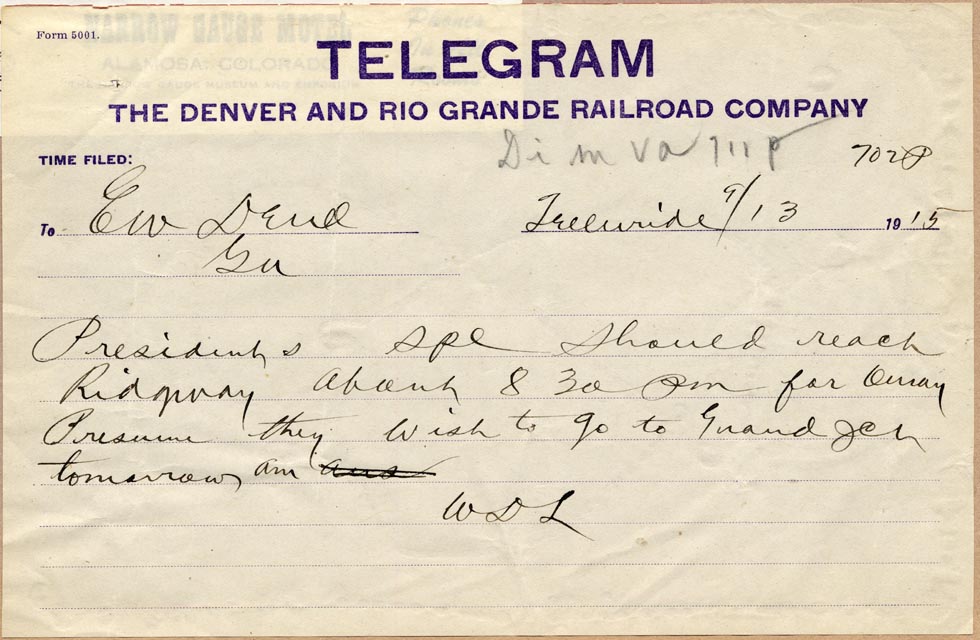 Form 5001.
NARROW GAUGE MOTEL
ALAMOSA, COLORADO
TELEGRAM
THE DENVER AND RIO GRANDE RAILROAD COMPANY
Di m va 711 p
702 P
TIME FILED:
To EW
9/13 1915
Gu
Presidents spl should reach
Ridgway about 8 30 pm for Ouray
Presume they wish to go to Grand Jct
tomorrow am
WDL